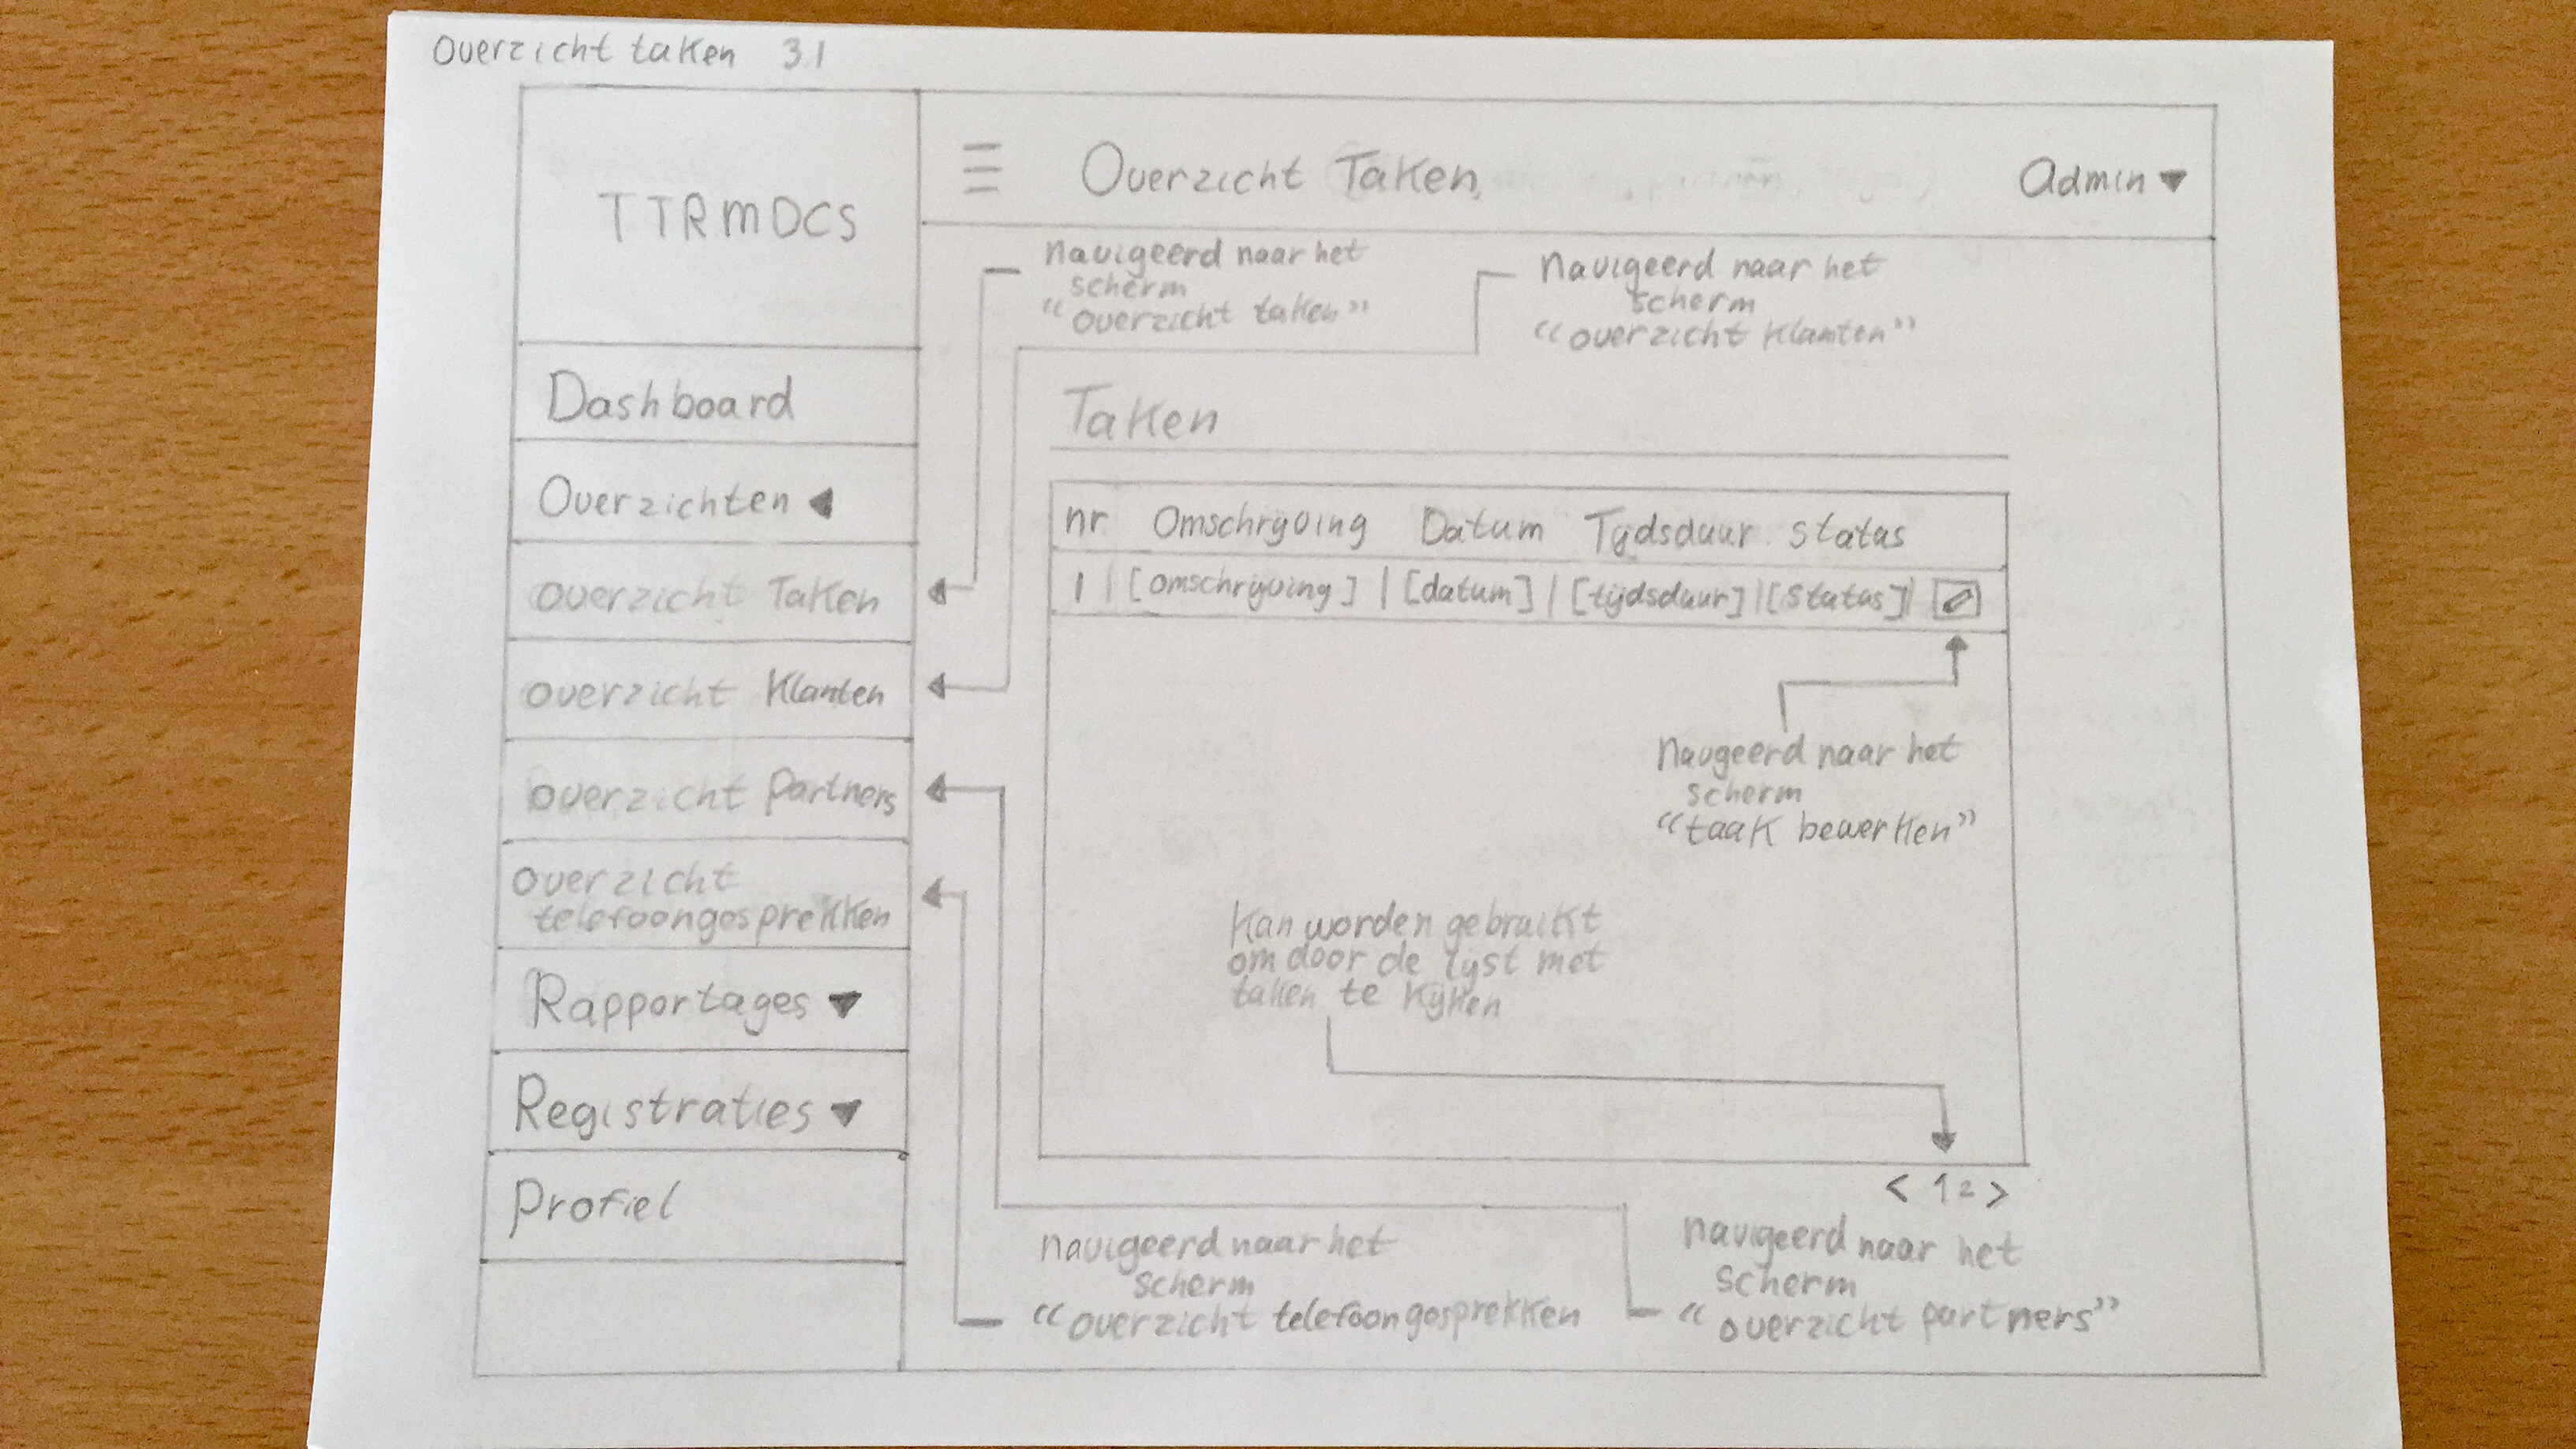 Overzicht taken 3.1
TTRMDCS
Overzicht Taken
Admin
Dashboard
Overzichten
overzicht Taken
overzicht Klanten
overzicht Partners
overzicht
telefoongesprekken
Rapportages
Registraties
Profiel
navigeerd naar het
scherm
"overzicht taken"
navigeerd naar het
scherm
"overzicht Klanten"
Taken
nr Omschrijving Datum Tijdsduur Status
1 | [omschrijving] | [datum] | [tijdsduur] | [Status] |
Navigeerd naar het
scherm
"taak bewerken"
Kan worden gebruikt
om door de lijst met
taken te kijken
< 1 2 >
navigeerd naar het
scherm
"overzicht telefoongesprekken
navigeerd naar het
scherm
"overzicht partners"